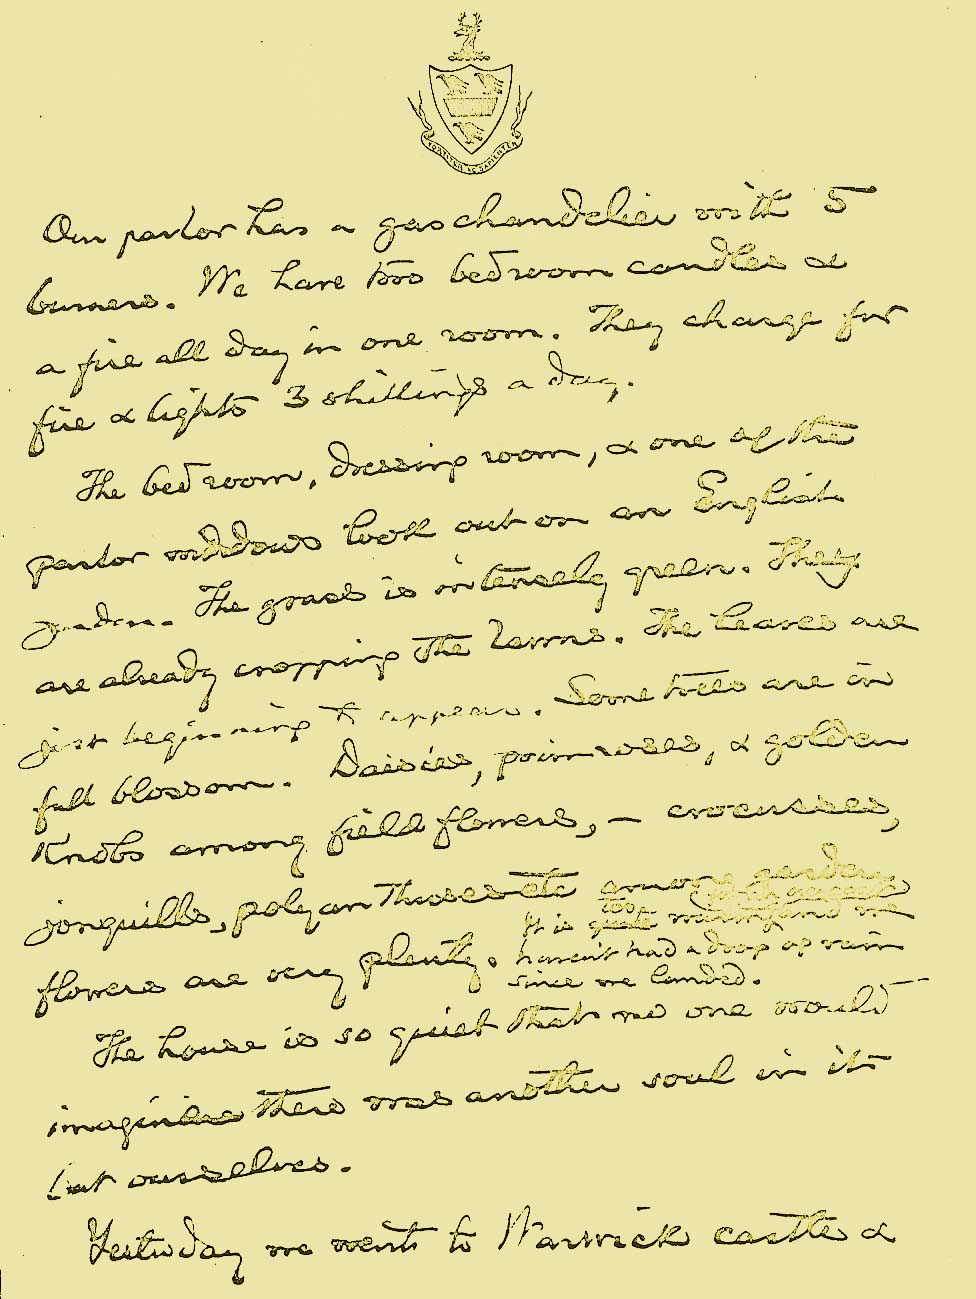 FORTITER ET SAPIENTER
Our parlor has a gas chandelier with 5
burners. We have two bedroom candles &
a fire all day in one room. They charge for
fire & lights 3 shillings a day.
The bedroom, dressing room, & one of the
parlor windows look out on an English
garden. The grass is intensely green. They
are already cropping the lawns. The leaves are
just beginning to appear. Some trees are in
full blossom. Daisies, primroses, & golden
Knobs among field flowers, — crocusses,
jonquills, polyanthuses etc among garden
flowers are very plenty. It is too warm and we
haven't had a drop of rain
since we landed.
The house is so quiet that no one would
imagine there was another soul in it
but ourselves.
Yesterday we went to Warwick castle &